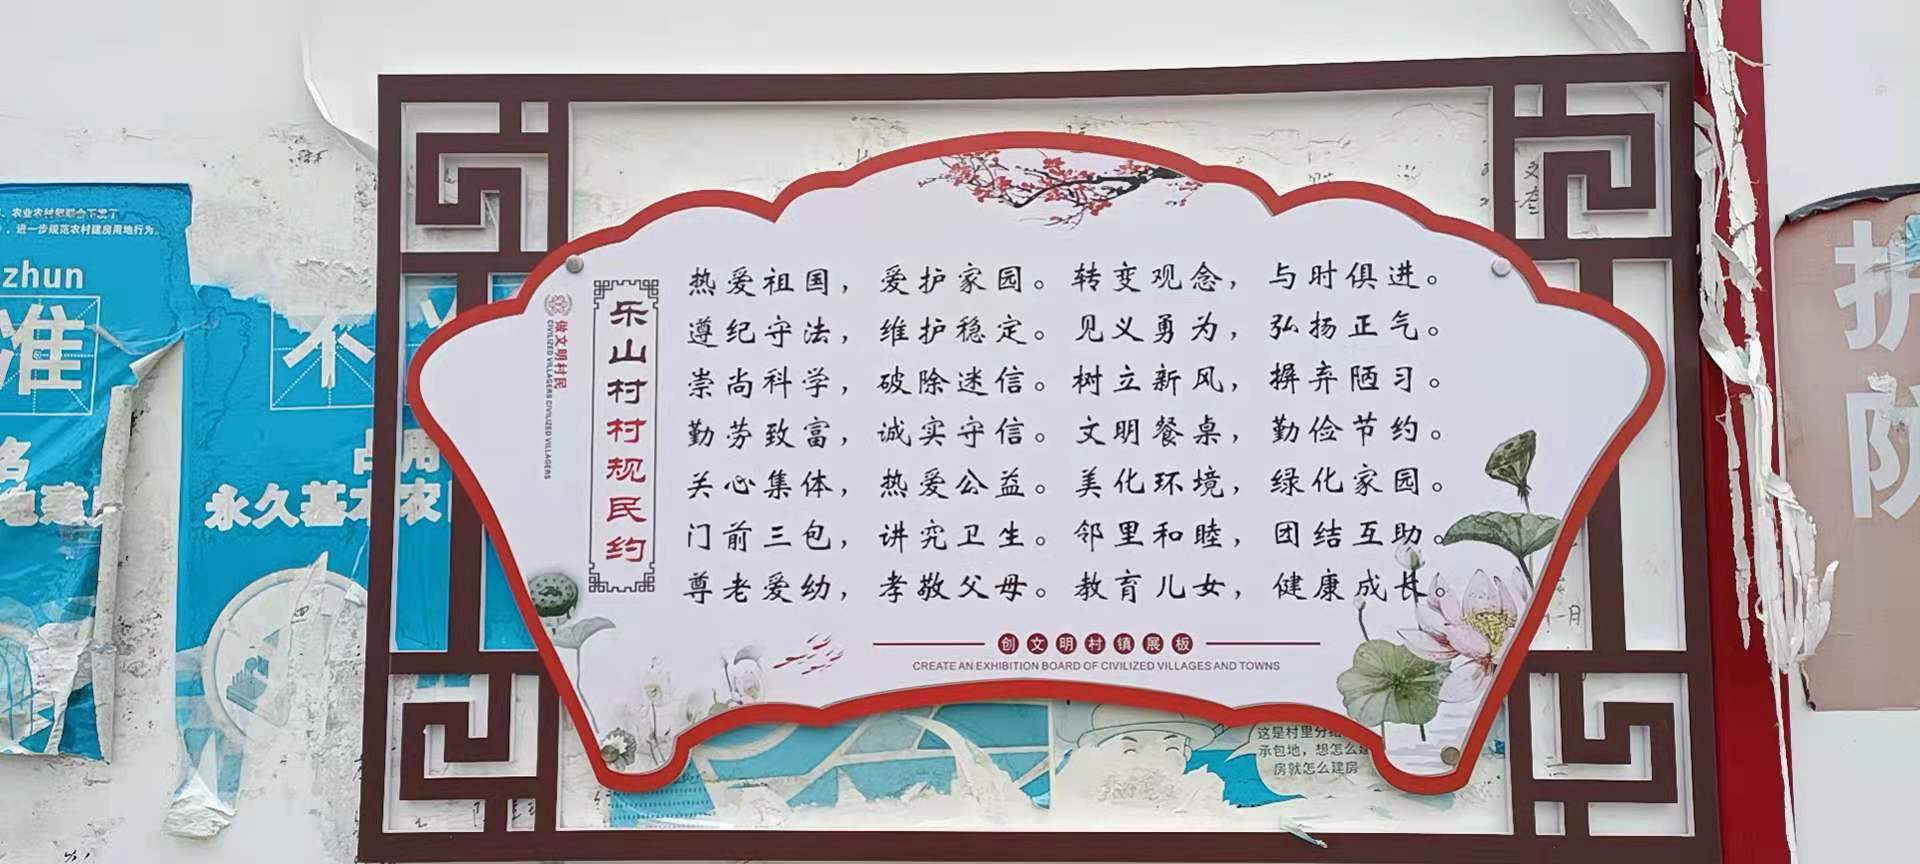 、农业农村部联合下发了
，进一步规范农村建房用地行为。
zhun
准
不
占用
永久基本农
做文明村民
CIVILIZED VILLAGERS CIVILIZED VILLAGERS
乐山村村规民约
热爱祖国，爱护家园。转变观念，与时俱进。
遵纪守法，维护稳定。见义勇为，弘扬正气。
崇尚科学，破除迷信。树立新风，摒弃陋习。
勤劳致富，诚实守信。文明餐桌，勤俭节约。
关心集体，热爱公益。美化环境，绿化家园。
门前三包，讲究卫生。邻里和睦，团结互助。
尊老爱幼，孝敬父母。教育儿女，健康成长。
创文明村镇展板
CREATE AN EXHIBITION BOARD OF CIVILIZED VILLAGES AND TOWNS
这是村里分给
承包地，想怎么建
房就怎么建房
护
防